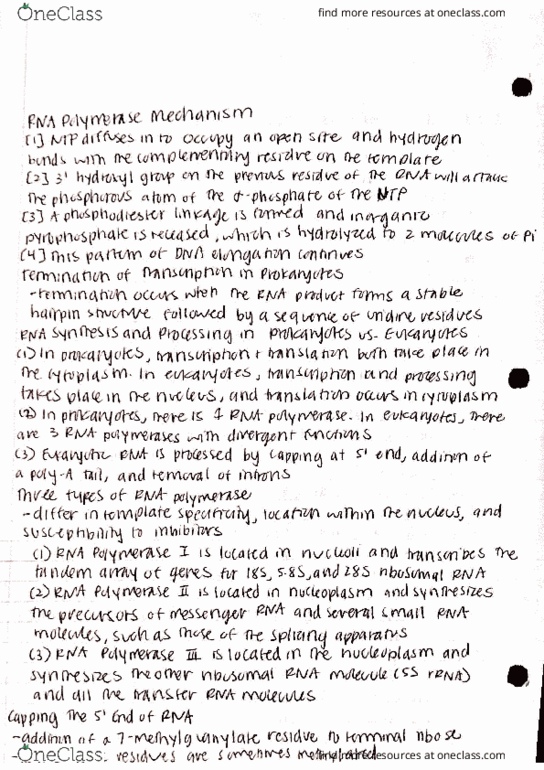 OneClass
find more resources at oneclass.com
RNA Polymerase Mechanism
[1] NTP diffuses in to occupy an open site and hydrogen
bonds with the complementary residue on the template
[2] 3' hydroxyl group on the previous residue of the DNA will attack
the phosphorous atom of the α-phosphate of the NTP
[3] A phosphodiester linkage is formed and inorganic
pyrophosphate is released, which is hydrolyzed to 2 molecules of Pi
[4] This pattern of DNA elongation continues
Termination of Transcription in Prokaryotes
-termination occurs when the RNA product forms a stable
hairpin structure followed by a sequence of uridine residues
RNA Synthesis and Processing in Prokaryotes vs. Eukaryotes
(1) In prokaryotes, transcription + translation both take place in
the cytoplasm. In eukaryotes, transcription and processing
takes place in the nucleus, and translation occurs in cytoplasm
(2) In prokaryotes, there is 1 RNA polymerase. In eukaryotes, there
are 3 RNA polymerases with divergent functions
(3) Eukaryotic RNA is processed by capping at 5' end, addition of
a poly-A tail, and removal of introns
Three types of RNA polymerase
-differ in template specificity, location within the nucleus, and
susceptibility to inhibitors
(1) RNA Polymerase I is located in nucleoli and transcribes the
tandem array of genes for 18S, 5.8S, and 28S ribosomal RNA
(2) RNA Polymerase II is located in nucleoplasm and synthesizes
the precursors of messenger RNA and several small RNA
molecules, such as those of the splicing apparatus
(3) RNA Polymerase III is located in the nucleoplasm and
synthesizes the other ribosomal RNA molecule (5S rRNA)
and all the transfer RNA molecules
Capping the 5' End of RNA
-addition of a 7-methylguanylate residue to terminal ribose
residues are sometimes methylated
OneClass
find more resources at oneclass.com